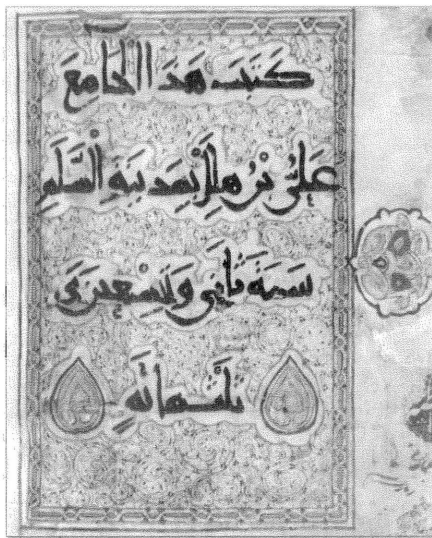 كَتَبَ هَذَا الجَامِعَ
عَلِيُّ بْنُ هِلَالٍ بِمَدِينَةِ السَّلَمِ
سَنَةَ ثَانِي وَتِسْعِينَ
ثَلَثمائَةِ